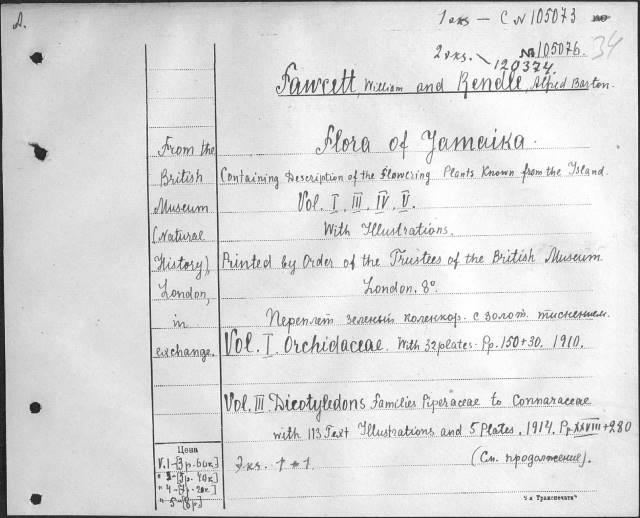 A.
1 экз — С № 105073
2 экз. № 105076. 34
120374.
Fawcett, William and Rendle, Alfred Barton.
Flora of Jamaika.
Containing Description of the Flowering Plants Known from the Island.
Vol. I, III, IV, V.
With Illustrations.
Printed by Order of the Trustees of the British Museum
London. 8°.
Переплет зеленый коленкор. с золот. тиснением.
Vol. I. Orchidaceae. With 32 plates. Pp. 150+30. 1910.
Vol. III. Dicotyledons Families Piperaceae to Connaraceae
with 113 Text Illustrations and 5 Plates. 1914. Pp. XXVIII+280
Экз. 1+1
(См. продолжение).
From the
British
Museum
(Natural
History),
London,
in
exchange.
Цена
V. 1-[3 р. 60 к]
" 3-[5 р. 40 к]
" 4-[7 р. 20 к]
" 5-[6 р]
"1-я Транспечать"